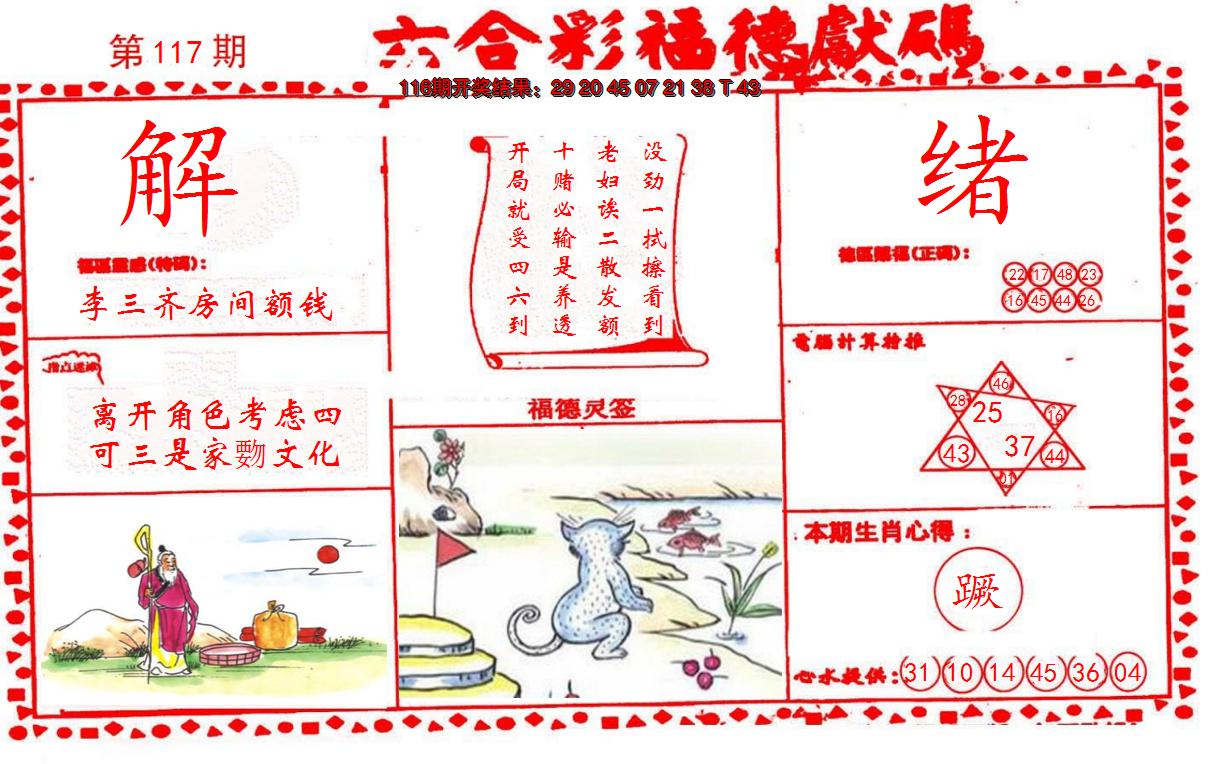 第117期
六合彩福德獻碼
116期开奖结果：29 20 45 07 21 38 T 43
解
李三齐房间额钱
离开角色考虑四
可三是家
文化
没劲一拭擦看到
老妇诶二散发额
十赌必输是养透
开局就受四六到
福德灵签
绪
(正码)：
22 17 48 23
16 45 44 26
電腦计算抢推
46
28
25
16
43
37
44
01
本期生肖心得：
蹶
心水提供：31 10 14 45 36 04